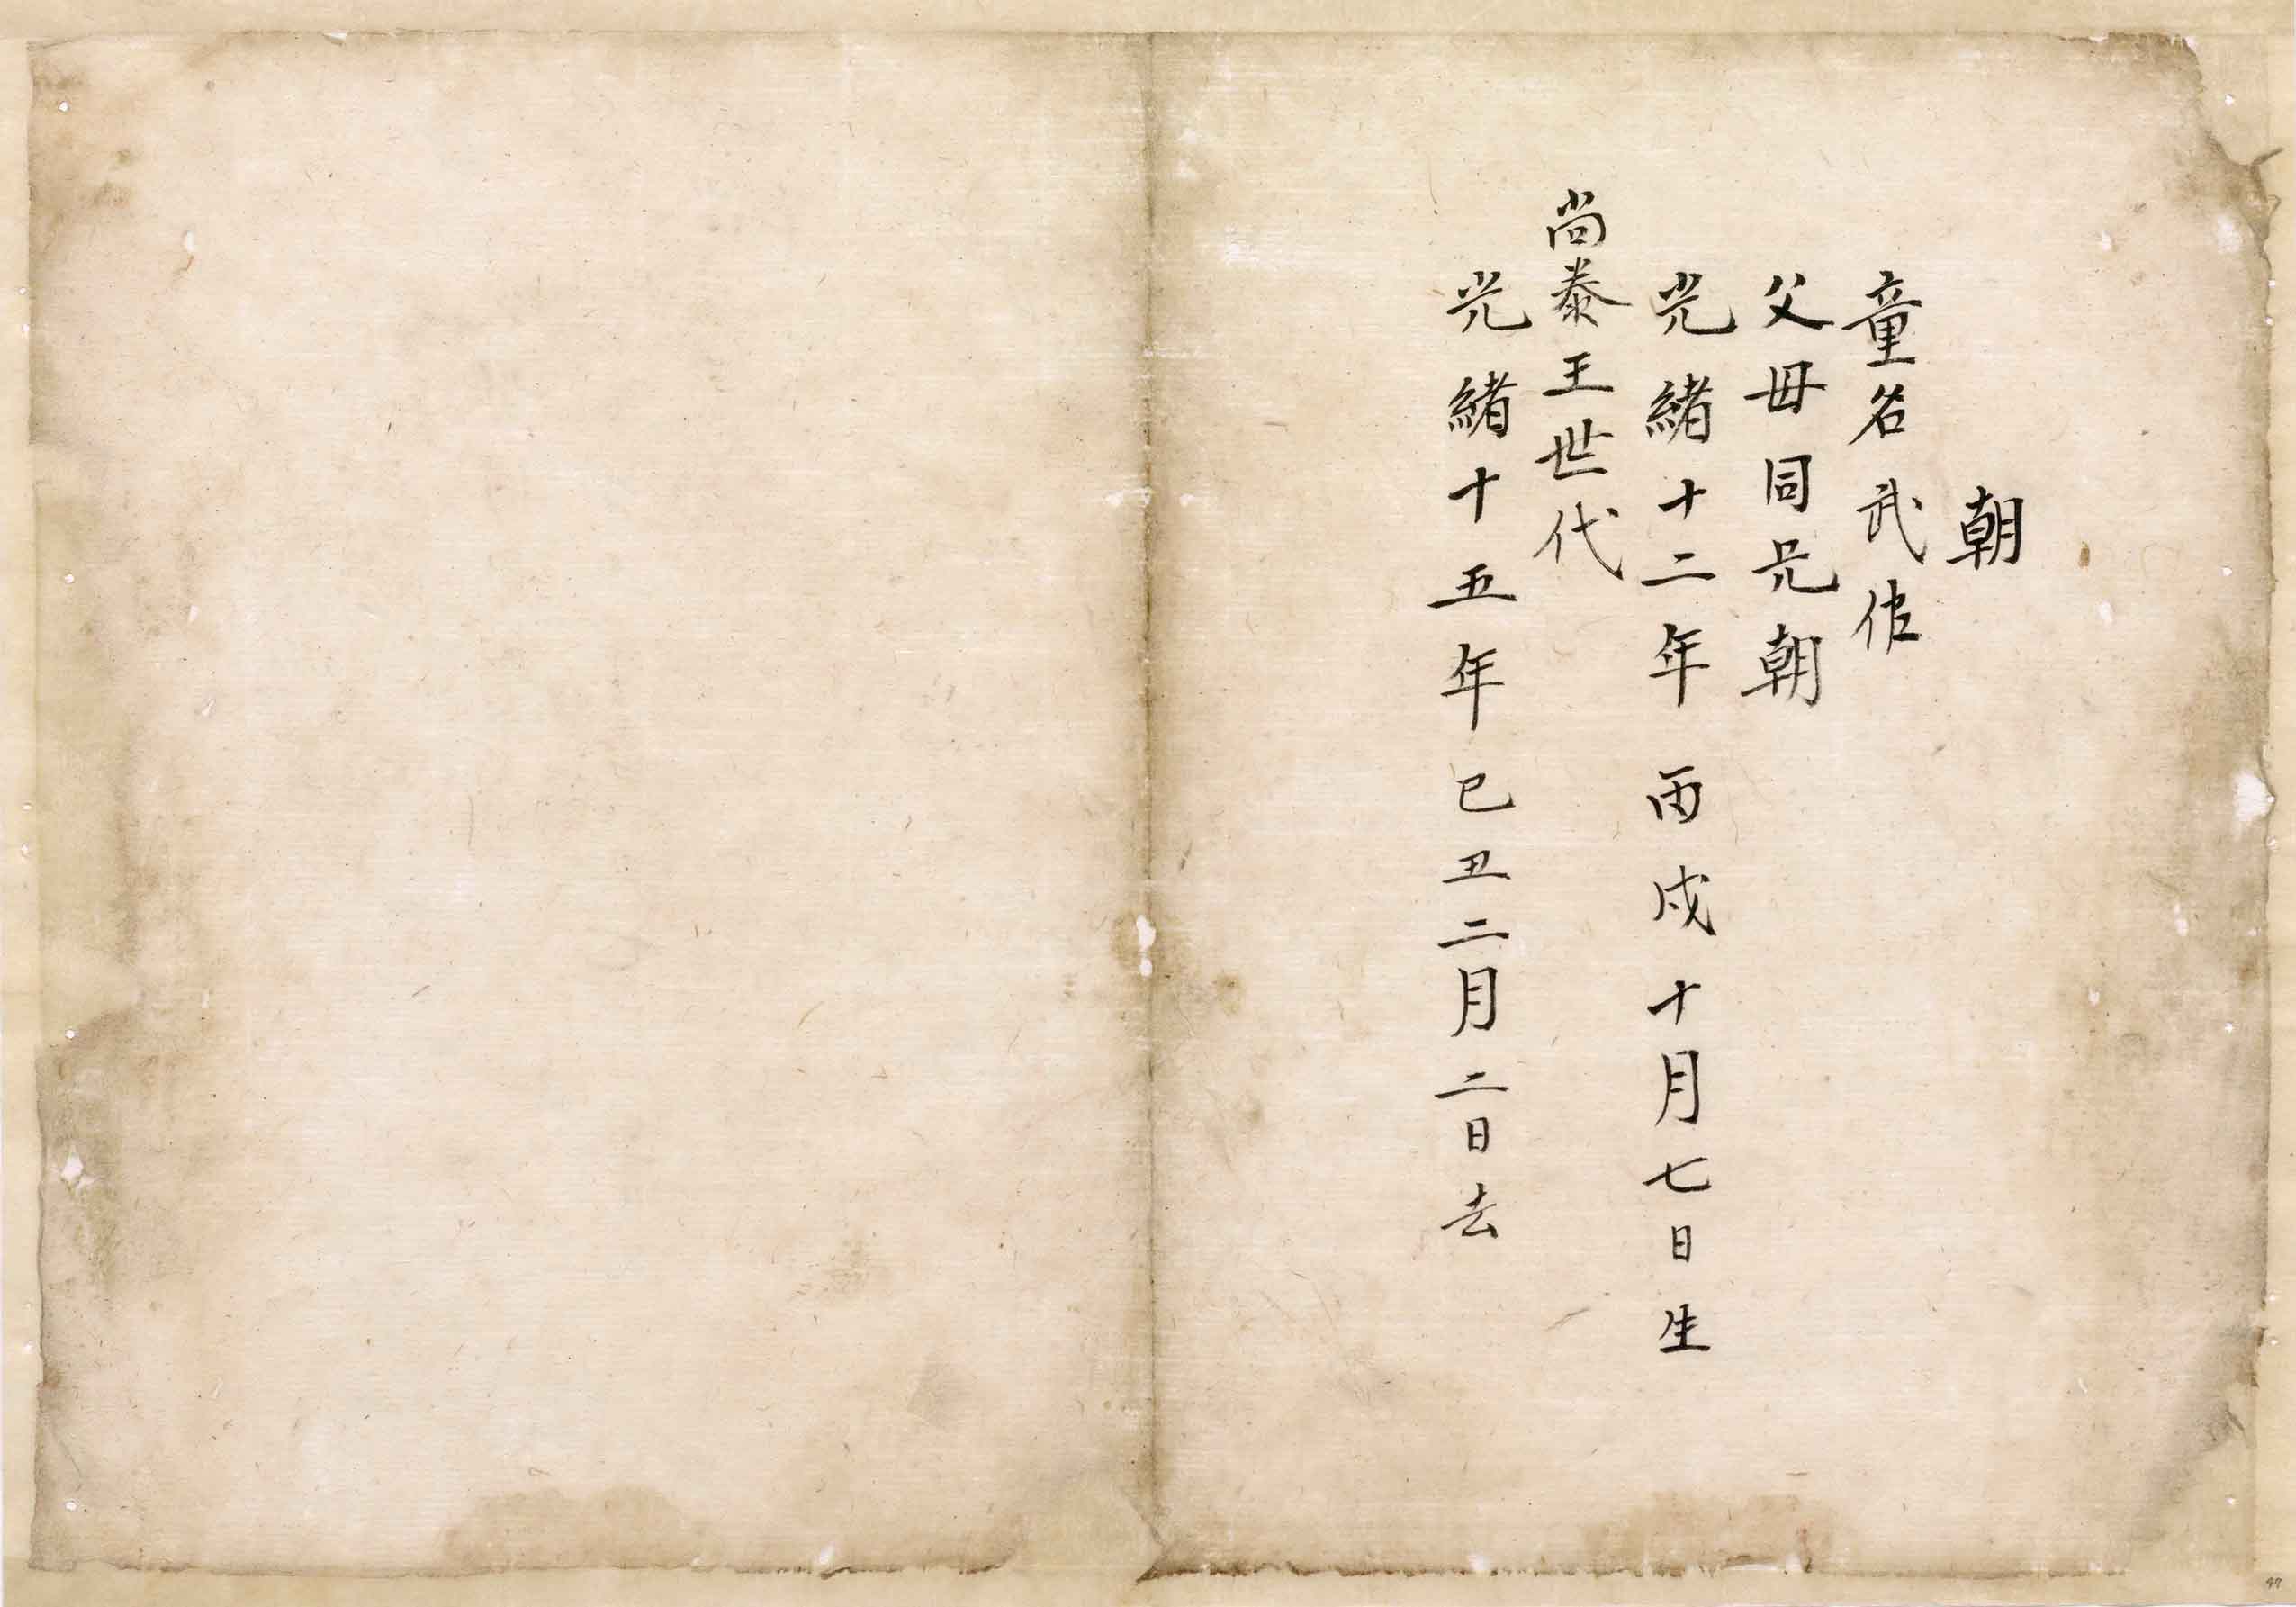 朝
童名武佐
父母同兄朝
光緒十二年丙戌十月七日生
尚泰王世代
光緒十五年己丑二月二日去
97